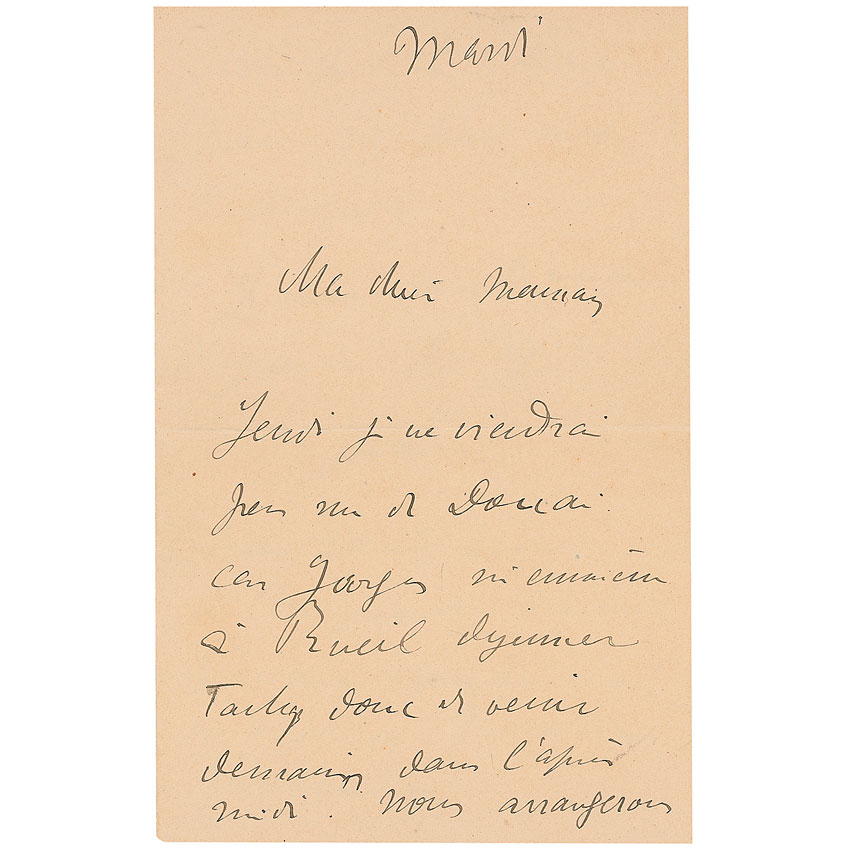 Mardi
Ma chère Maman
Jeudi je ne viendrai
pas rue de Douai
car Georges m'emmène
à Rueil déjeuner
Tachez donc de venir
demain dans l'après
midi. Nous arrangerons